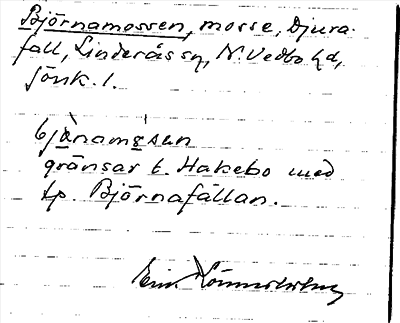 Björnamossen, mosse, Djura-
fall, Linderås sn, N. Vedbo hd,
Jönk. l.
bjànamǫ́san
gränsar t. Hakebo med
tp. Björnafällan.
Ein.